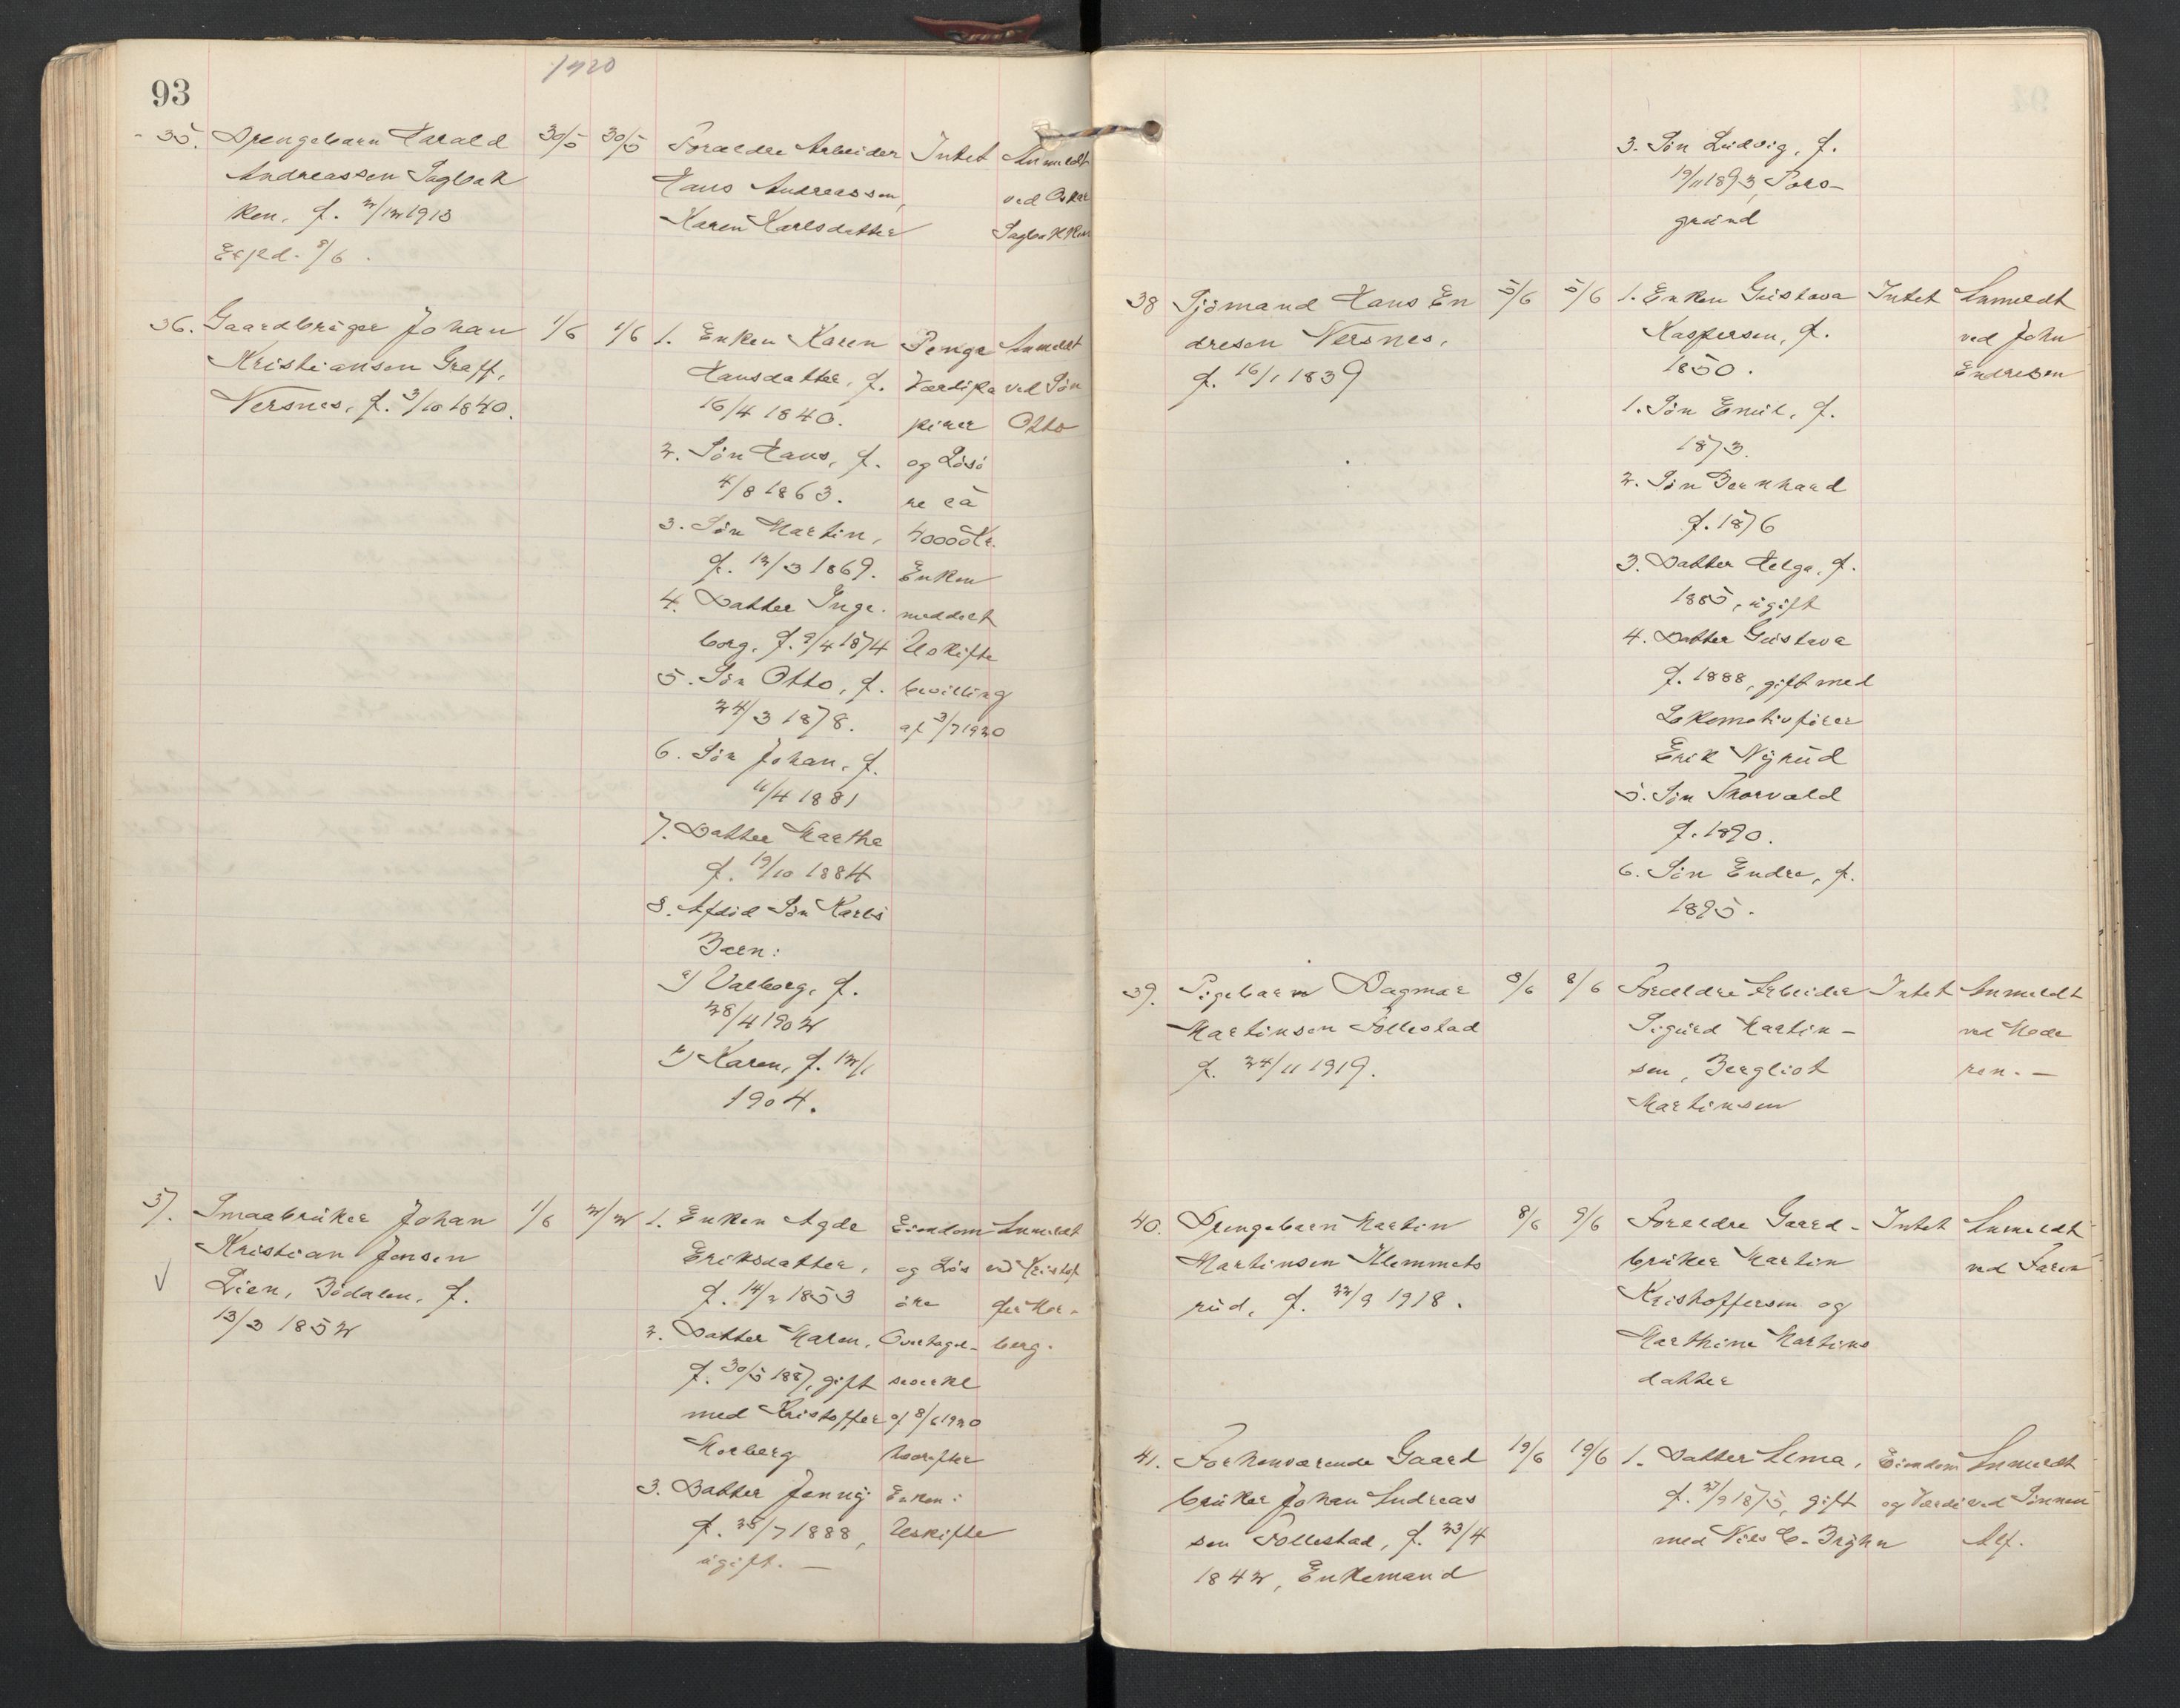 93
1920
35. Drengebarn Harald 30/5 30/5 Forældre Arbeider Intet Anmeldt
Andreassen Sagbak Hans Andreassen, ved Oskar
ken, f. 2/12 1913 Karen Karlsdatter Sagbakken
8/6.
36. Gaardbruger Johan 1/6 1/6 1. Enken Karen Penge Anmeldt
Kristiansen Graff, Hansdatter, f. Værdipa ved Søn
Nersnes, f. 3/10 1840. 16/4 1840. pirer Otto
2. Søn Hans, f. og Løsø
4/8 1863. re ca
3. Søn Martin, 40000 Kr.
f. 12/3 1869. Enken
4. Datter Inge- meddelt
borg, f. 9/4 1874 Uskifte
5. Søn Otto, f. bevilling
24/3 1878. af 3/7 1920
6. Søn Johan, f.
11/4 1881
7. Datter Marthe
f. 19/10 1884
8. Afdød Søn Karls
Barn:
a) Valborg, f.
28/4 1902
b) Karen, f. 12/1
1904.
37. Smaabruker Johan 1/6 2/2 1. Enken Agde Eiendom Anmeldt
Kristian Jensen Eriksdatter, og Løs ved Kristof
Lien, Bødalen, f. f. 14/2 1853 øre fer Mor-
13/3 1852 2. Datter Maren, Overtagel- berg.
f. 30/5 1887, gift seserkl
med Kristoffer af 8/6 1920
Morberg hvorefter
3. Datter Jenny Enken i
f. 28/7 1888, Uskifte
ugift. —
3. Søn Ludvig, f.
19/11 1893, Pors-
grund
38 Sjømand Hans En 5/6 5/6 1. Enken Gustava Intet Anmeldt
dresen Nersnes, Kaspersen, f. ved John
f. 16/1 1839 1850. Endresen
1. Søn Emil, f.
1873.
2. Søn Bernhard
f. 1876
3. Datter Helga, f.
1885, ugift
4. Datter Gustava
f. 1888, gift med
Lokomotivfører
Erik Nyrud
5. Søn Thorvald
f. 1890.
6. Søn Endre, f.
1895.
39. Pigebarn Dagmar 8/6 8/6 Forældre Arbeider Intet Anmeldt
Martinsen Follestad Sigurd Martin- ved Mode
f. 24/11 1919. sen, Bergliot ren. —
Martinsen
40. Drengebarn Martin 8/6 9/6 Forældre Gaard- Intet Anmeldt
Martinsen Klemmets bruker Martin ved Faren
rud, f. 22/9 1918. Kristoffersen og
Marthine Martins
datter
41. Forhenværende Gaard 19/6 19/6 1. Datter Alma, Eiendom Anmeldt
bruker Johan Andreas f. 27/9 1875, gift og Værdi ved Sønnen
sen Follestad, f. 23/4 med Nils C. Bryhn Alf.
1842, Enkemand